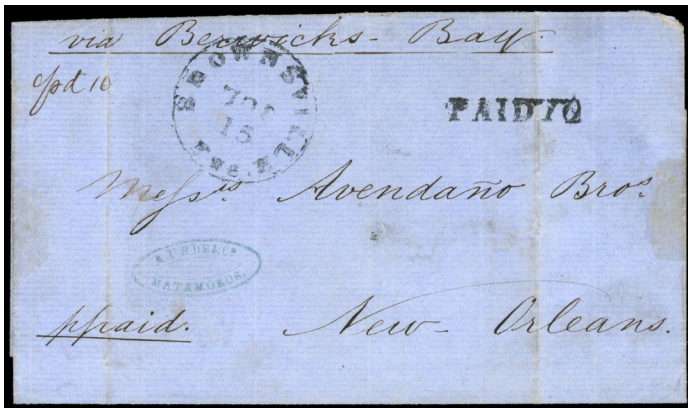 via Berwicks- Bay-
pd 10
BROWNSVILLE TEX
15
PAID 10
Messrs Avendaño Bros.
MATAMOROS.
ppaid.
New- Orleans.